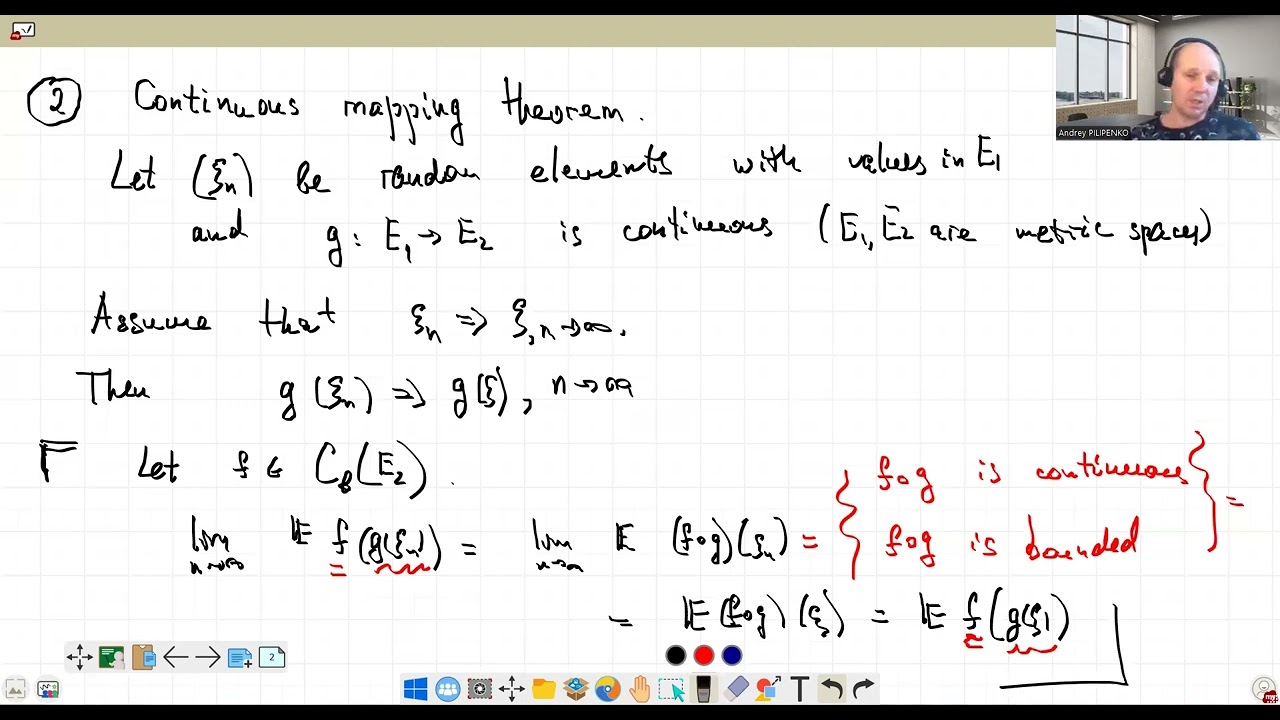 ② Continuous mapping theorem.
Let (ξₙ) be random elements with values in E₁
and g: E₁ → E₂ is continuous (E₁, E₂ are metric spaces)
Assume that ξₙ ⇒ ξ, n→∞.
Then g(ξₙ) ⇒ g(ξ), n→∞
Γ Let f ∈ C_b(E₂).
lim n→∞ 𝔼 f(g(ξₙ)) = lim n→∞ 𝔼 (f∘g)(ξₙ) = { f∘g is continuous
f∘g is bounded } =
= 𝔼(f∘g)(ξ) = 𝔼 f(g(ξ))
Andrey PILIPENKO
2
T